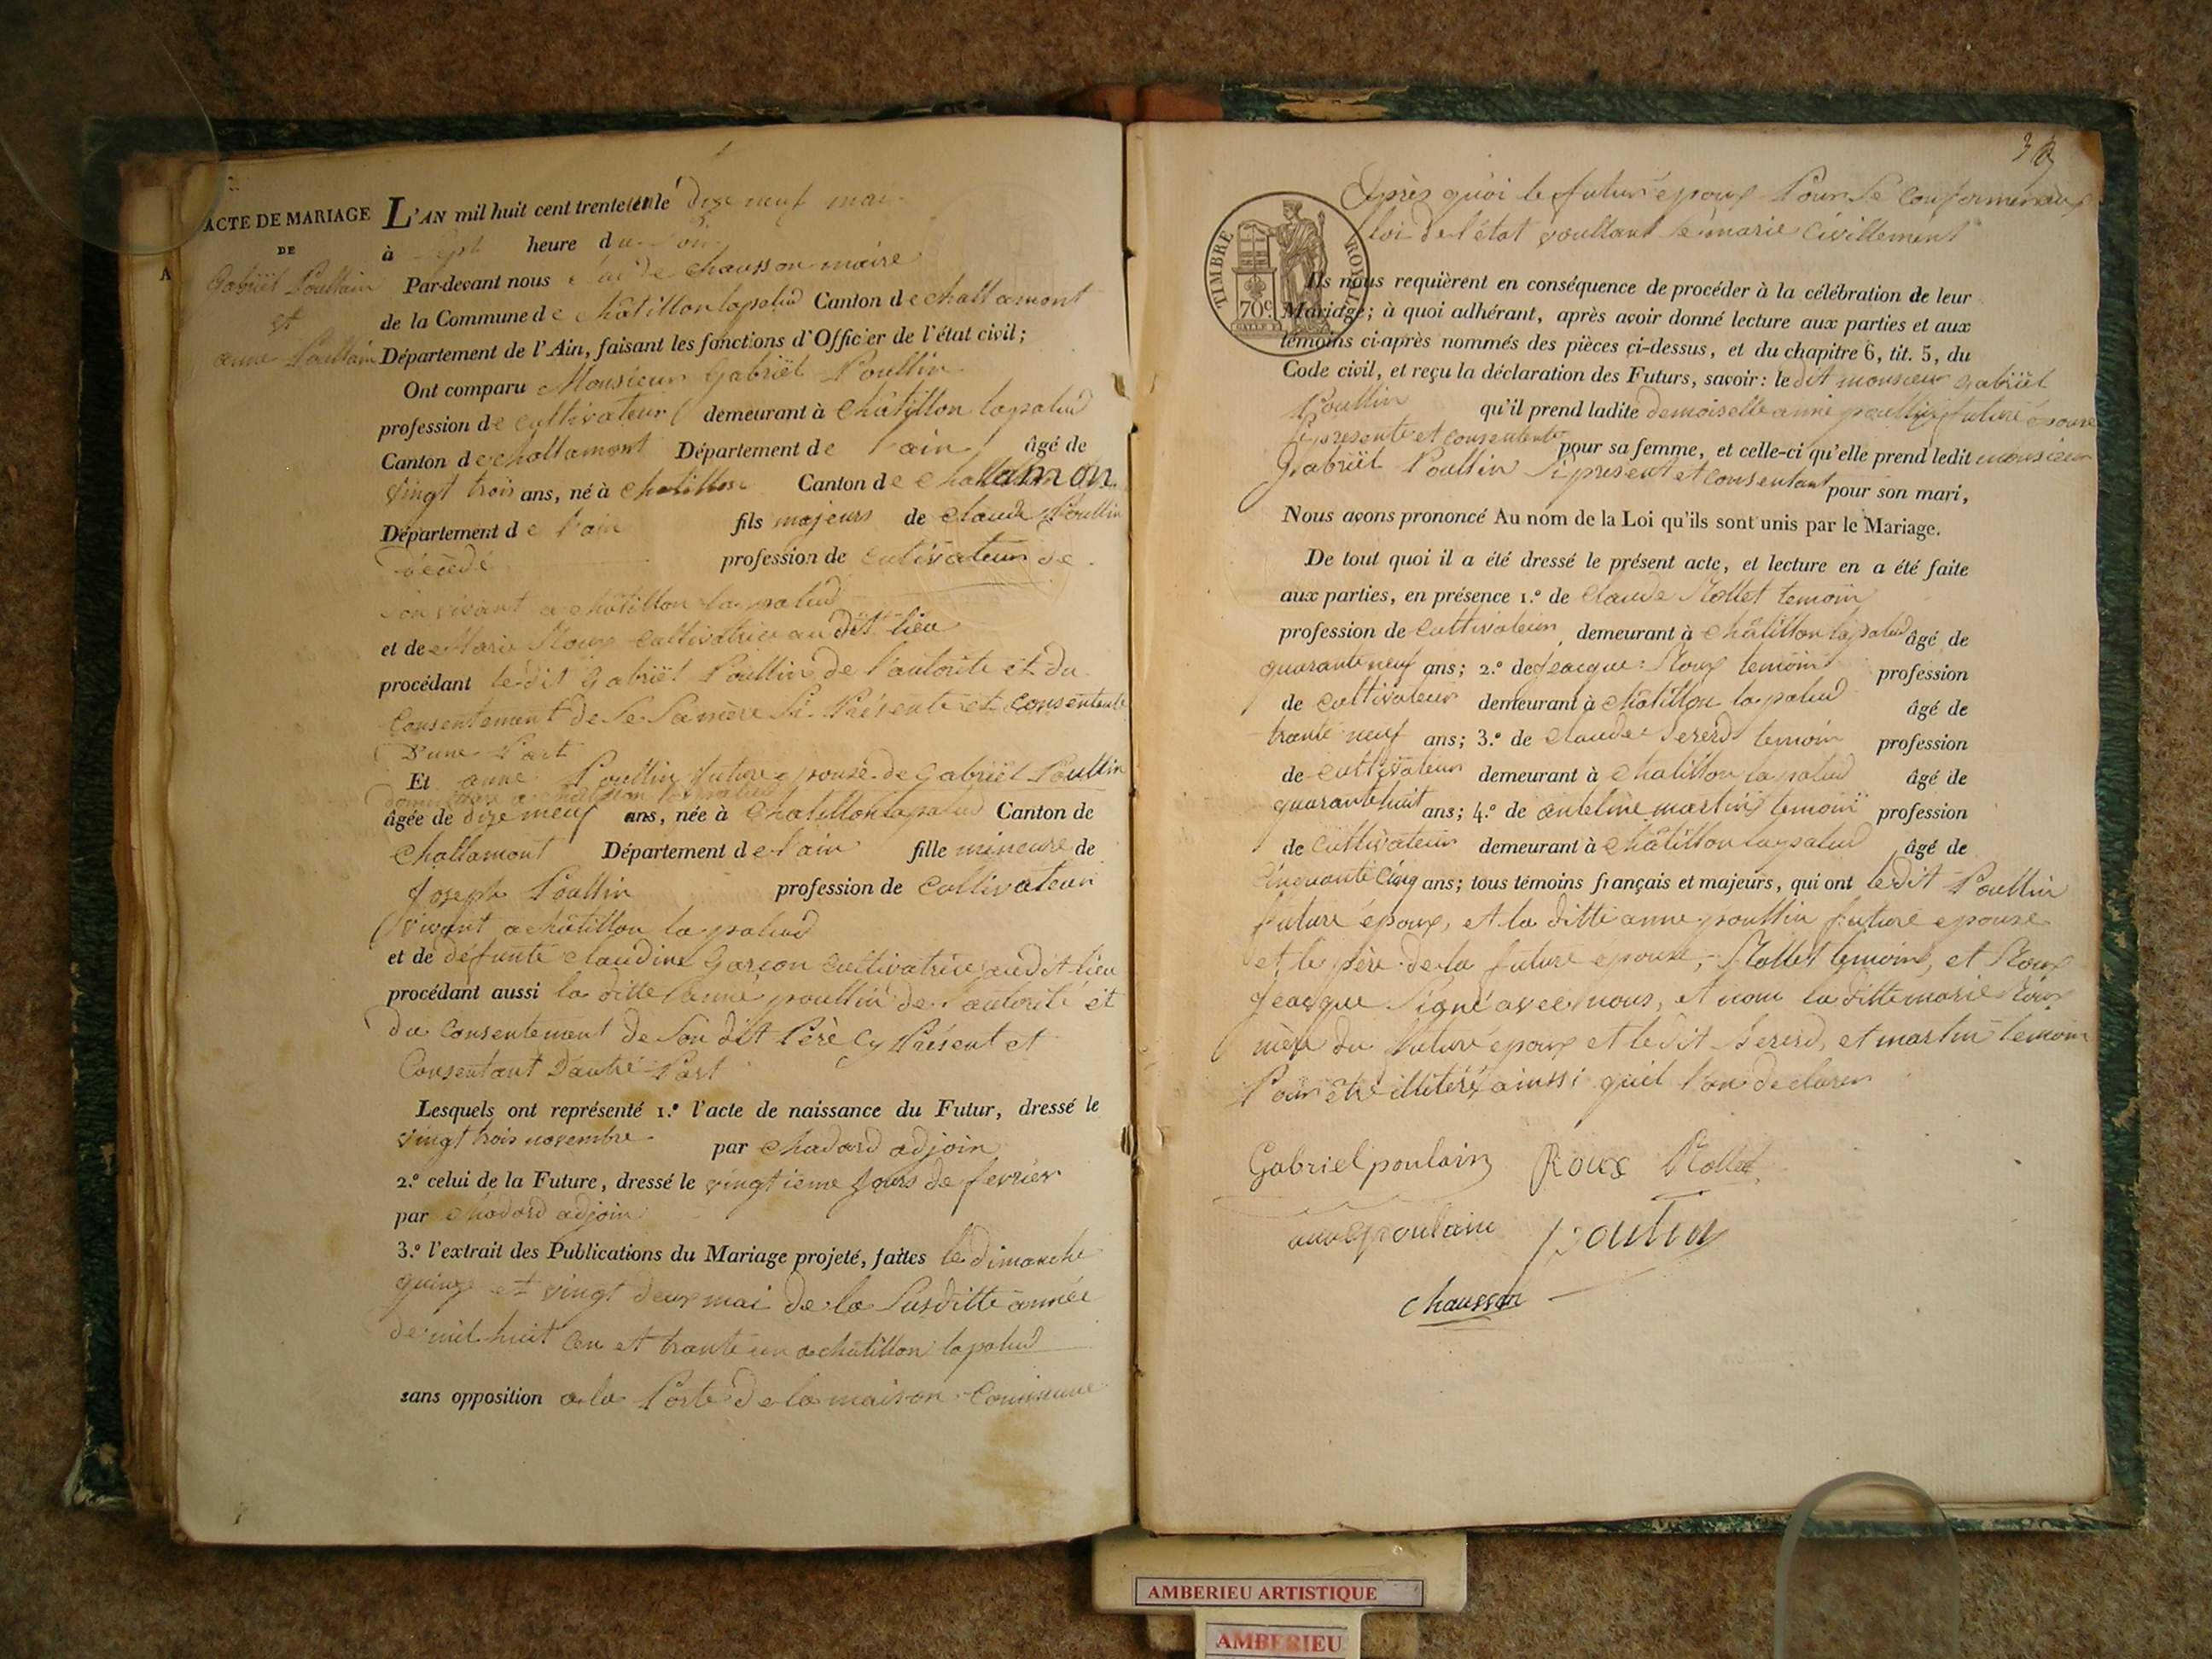 ACTE DE MARIAGE
DE
Gabriël Poullain
et
anne Poullain
L'AN mil huit cent trente et un le dize neuf mai
à Sept heure du Soir
Par-devant nous Claude chausson maire
de la Commune de châtillon lapalud Canton de challamont
Département de l'Ain, faisant les fonctions d'Officier de l'état civil;
Ont comparu Monsieur Gabriël Poullin
profession de cultivateur demeurant à châtillon lapalud
Canton de challamont Département de l'ain âgé de
vingt trois ans, né à chatillon Canton de challamon
Département de l'ain fils majeurs de claude Poullin
décèdé profession de cultivateur de
son vivant a châtillon la palud
et de Marie Roux cultivatrice au dit lieu
procédant le dit Gabriël Poullin de l'autorité et du
Consentement de Se Sa mère Si Présente et consentente
D'une Part
Et anne Poullin future epouse de Gabriël Poullin
demeurant a châtillon lapalud
âgée de dize neuf ans, née à Chatillon lapalud Canton de
Challamont Département de l'ain fille mineure de
Joseph Poullin profession de Cultivateur
vivant a châtillon la palud
et de défunte claudine Garçon cultivatrice audit lieu
procédant aussi la ditte anne poullin de l'autorité et
du Consentement de Son dit Père Cy Présent et
Consentant D'autre Part
Lesquels ont représenté 1.º l'acte de naissance du Futur, dressé le
vingt trois novembre par chadard adjoin
2.º celui de la Future, dressé le vingtieme Jours de fevrier
par chadard adjoin
3.º l'extrait des Publications du Mariage projeté, faites le dimanche
quinze et vingt deux mai de la Susditte année
de mil huit Cen et trante un a châtillon la palud
sans opposition a la Porte de la maison Commune
3
TIMBRE ROYAL
70c
Après quoi le futur époux Pour Se Conformer aux
loi de l'état voullant Se marie Civillement
Ils nous requièrent en conséquence de procéder à la célébration de leur
Mariage; à quoi adhérant, après avoir donné lecture aux parties et aux
témoins ci-après nommés des pièces ci-dessus, et du chapitre 6, tit. 5, du
Code civil, et reçu la déclaration des Futurs, savoir: le dit monsieur Gabriël
Poullin qu'il prend ladite demoiselle anne poullin future épouse
Si presente et consentente pour sa femme, et celle-ci qu'elle prend ledit monsieur
Gabriël Poullin Si present et consentant pour son mari,
Nous avons prononcé Au nom de la Loi qu'ils sont unis par le Mariage.
De tout quoi il a été dressé le présent acte, et lecture en a été faite
aux parties, en présence 1.º de Claude Mollet temoin
profession de Cultivateur demeurant à châtillon lapalud âgé de
quarante neuf ans; 2.º de Jeacque Roux temoin profession
de cultivateur demeurant à châtillon la palud âgé de
trante neuf ans; 3.º de Claude temoin profession
de cultivateur demeurant à chatillon la palud âgé de
quarante huit ans; 4.º de antelme martin temoin profession
de cultivateur demeurant à châtillon lapalud âgé de
Cinquante Cinq ans; tous témoins français et majeurs, qui ont le dit Poullin
future époux, et la ditte anne poullin future epouse
et le père de la future epouse, Mollet temoin, et Roux
Jeacque Signé avec nous, et non la ditte marie Roux
mère du future époux et le dit et martin temoin
Pour être illiteré ainssi quil l'on declarer
Gabriel poulain Roux Mollet
anne poulain poulin
chausson
AMBERIEU ARTISTIQUE
AMBERIEU